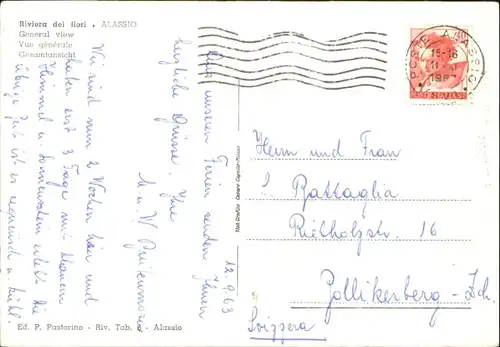 Riviera dei fiori . ALASSIO
General view
Vue générale
Gesamtansicht
12.9.63
Aus unseren Ferien senden Ihnen
herzliche Grüsse. Ihre
M. u. W.
Wir sind nun 2 Wochen hier und
haben erst 3 Tage mit blauem
Himmel u. Sonnenschein erlebt die
übrige Zeit ist es regnerisch u. kühl.
Ed. P. Pastorino - Riv. Tab. - Alassio
POSTE ALASSIO
15-16
Herrn und Frau
Battaglia
Rietholzstr. 16
Zollikerberg-Zch.
Svizzera